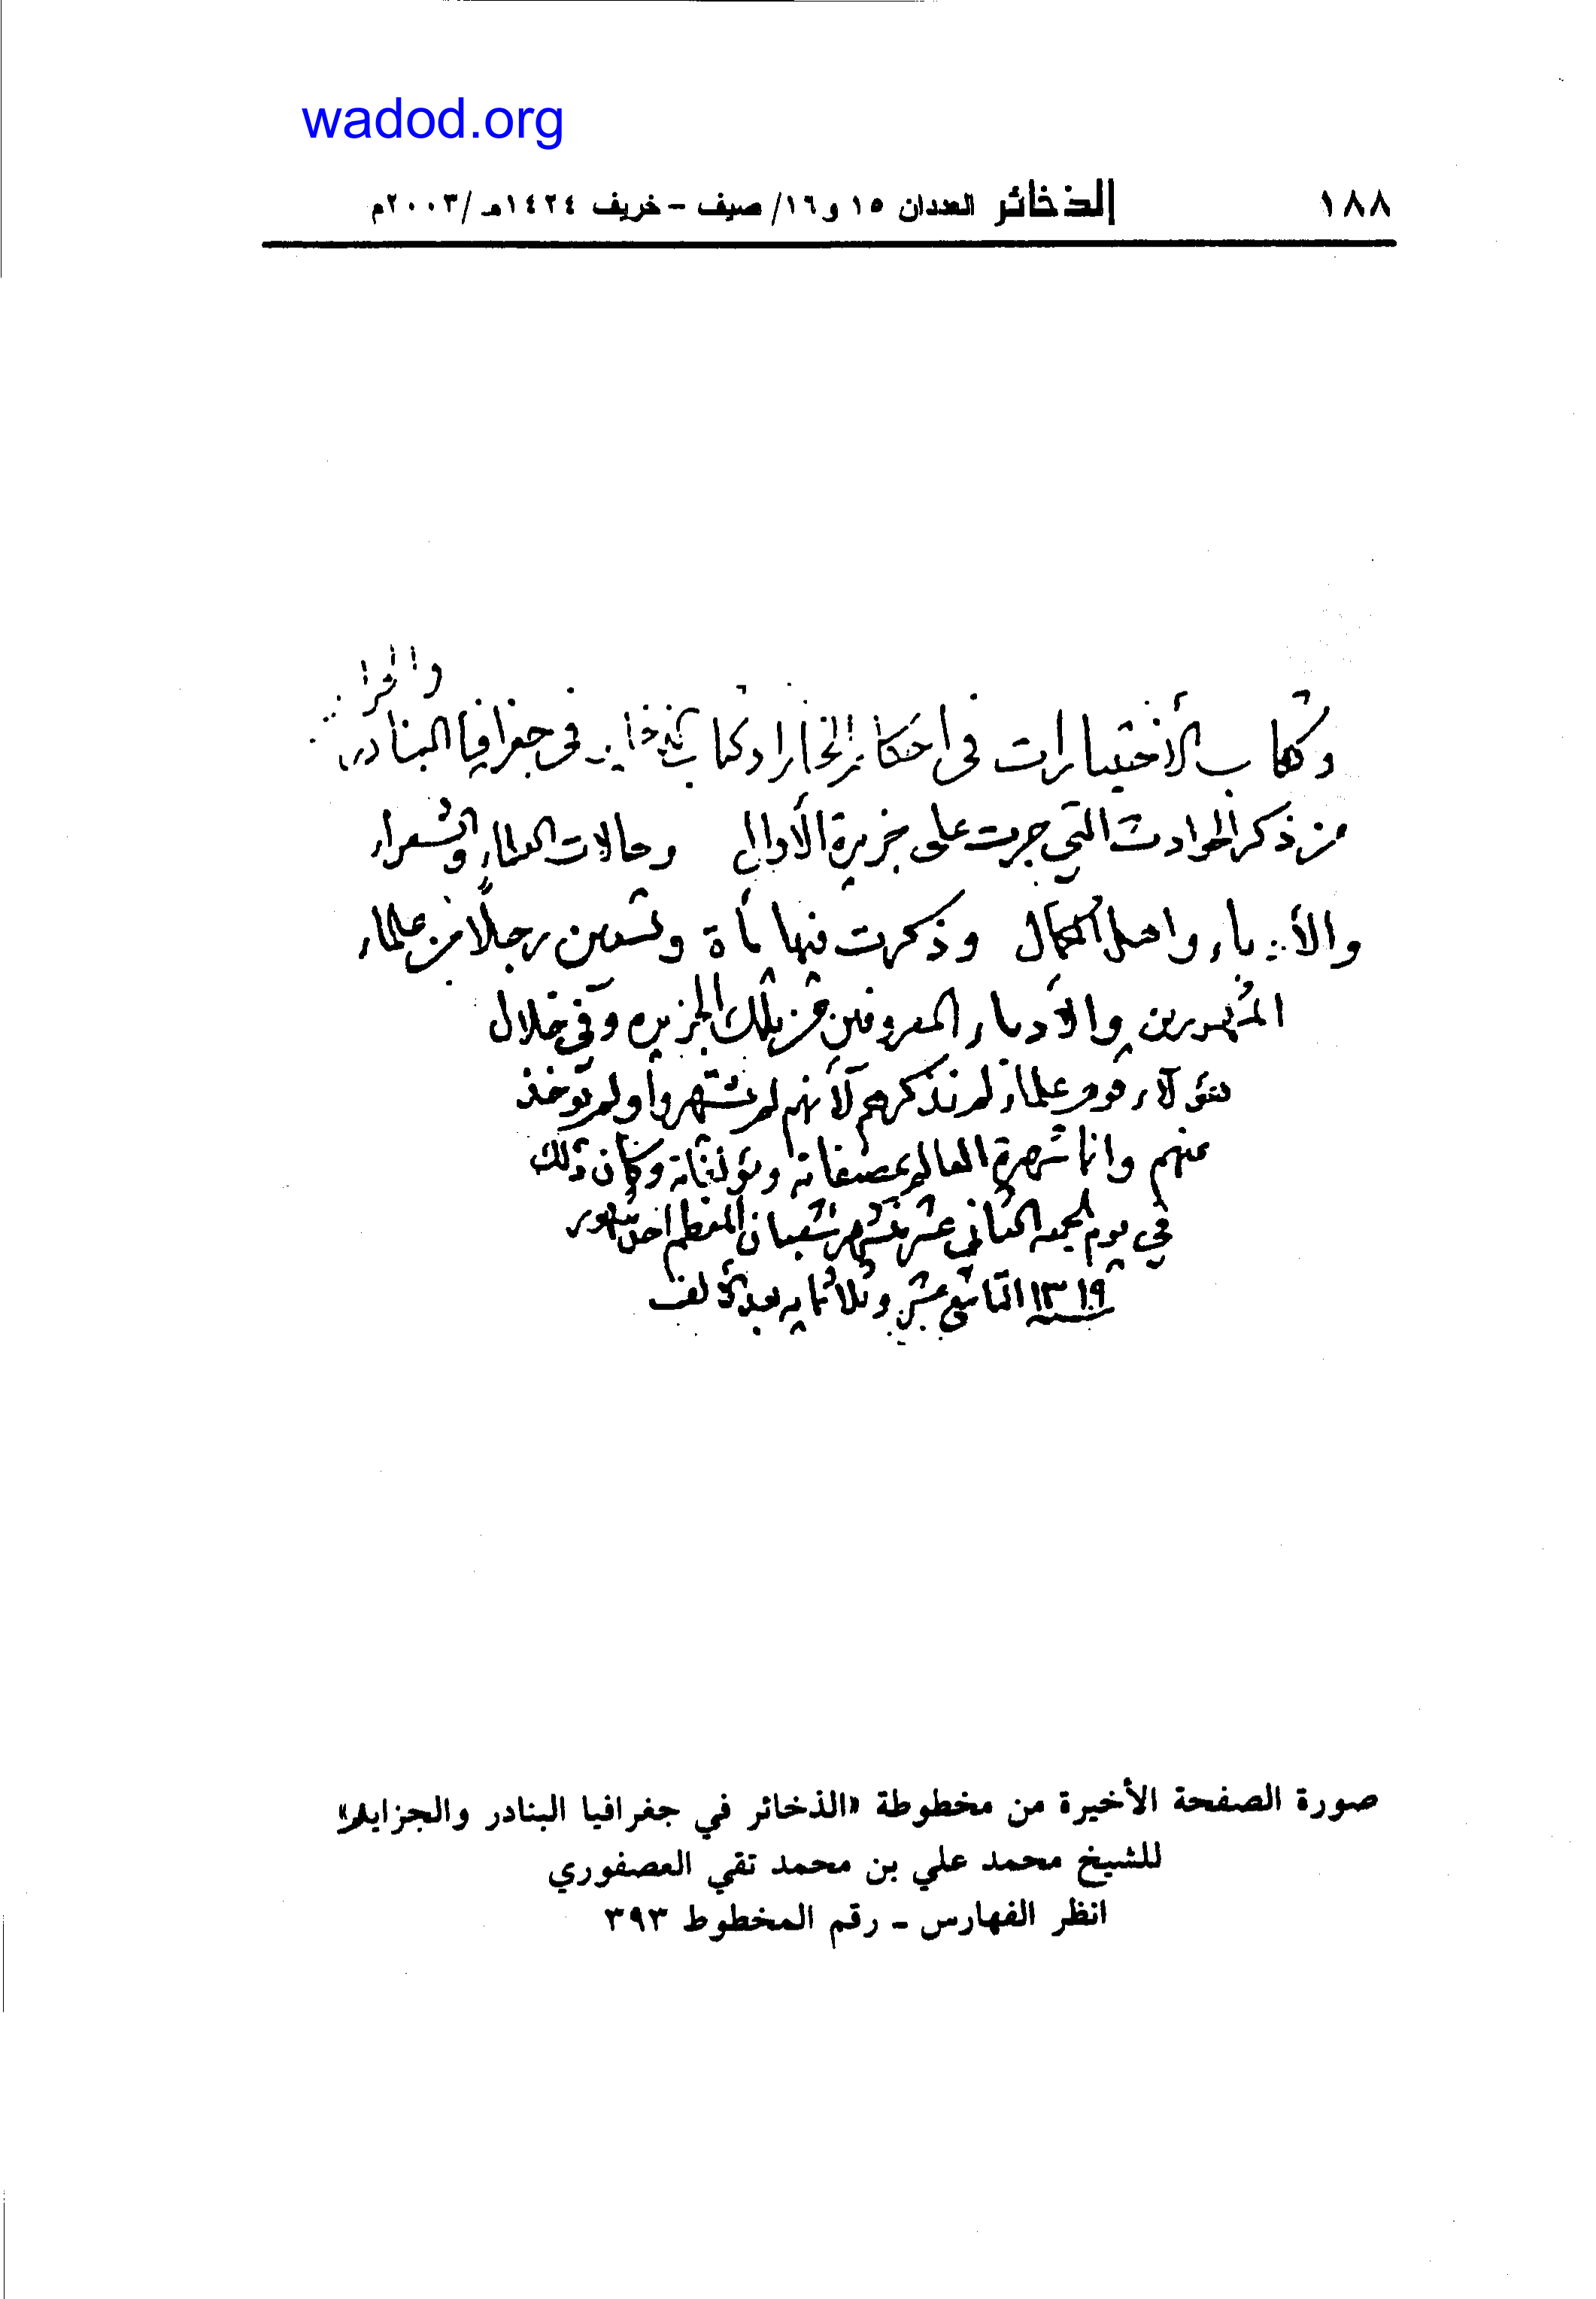 wadod.org
١٨٨ الذخائر العددان ١٥ و١٦/ صيف - خريف ١٤٢٤هـ/٢٠٠٣م
والجزا
وكتاب الأختيارات في احكام الخيار وكتاب في جغرافيا البنادر
من ذكر الحوادث التي جرت على جزيرة الأوال وحالات العلماء والشعراء
والأدباء واهل الكمال وذكرت فيها مأة وتسعين رجلًا من علماء
المشهورين والأدباء المعروفين من تلك الجزيره وفي خلال
هؤلاء قوم علماء لم نذكرهم لأنهم لم يشتهروا ولم يؤخذ
عنهم وانما شهرة العالم بمصنفاته ومؤلفاته وكان ذلك
في يوم الجمعه الثاني عشر من شهر شعبان المعظم احد شهور
سنه ١٣١٩ التاسع عشر وثلاثمايه بعد الألف
صورة الصفحة الأخيرة من مخطوطة «الذخائر في جغرافيا البنادر والجزاير»
للشيخ محمد علي بن محمد تقي العصفوري
انظر الفهارس - رقم المخطوط ٣٩٣